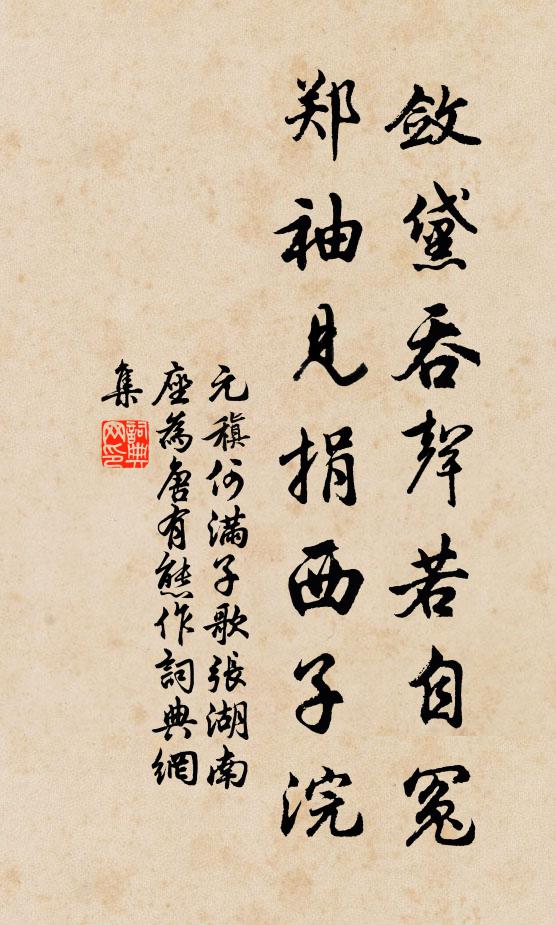 斂黛吞聲若自冤
郑袖見捐西子浣
元稹何滿子歌張湖南
座為唐有熊作詞典網
集
詞典
网印